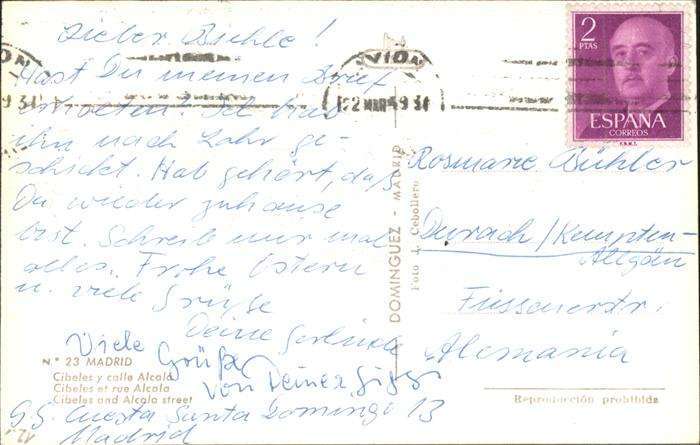 Lieber Bühle!
Hast Du meinen Brief
erhalten? Ich hab
ihn nach Lahr ge-
schickt. Hab gehört, daß
Du wieder zuhause
bist. Schreib mir mal
alles. Frohe Ostern
u. viele Grüße
Deine Gerlinde
Viele
Grüße
von Deiner
G.G. Cuesta Santa Domingo 13
Madrid
N.º 23 MADRID
Cibeles y calle Alcalá
Cibeles et rue Alcala
Cibeles and Alcala street
DOMINGUEZ - MADRID
Foto J. Cebollero
VION
22 MAR 59
2
PTAS
ESPAÑA
CORREOS
F.N.M.T.
Rosmarie Bühler
Durach/Kempten-
Allgäu
Füssenerstr.
Alemania
Reproducción prohibida